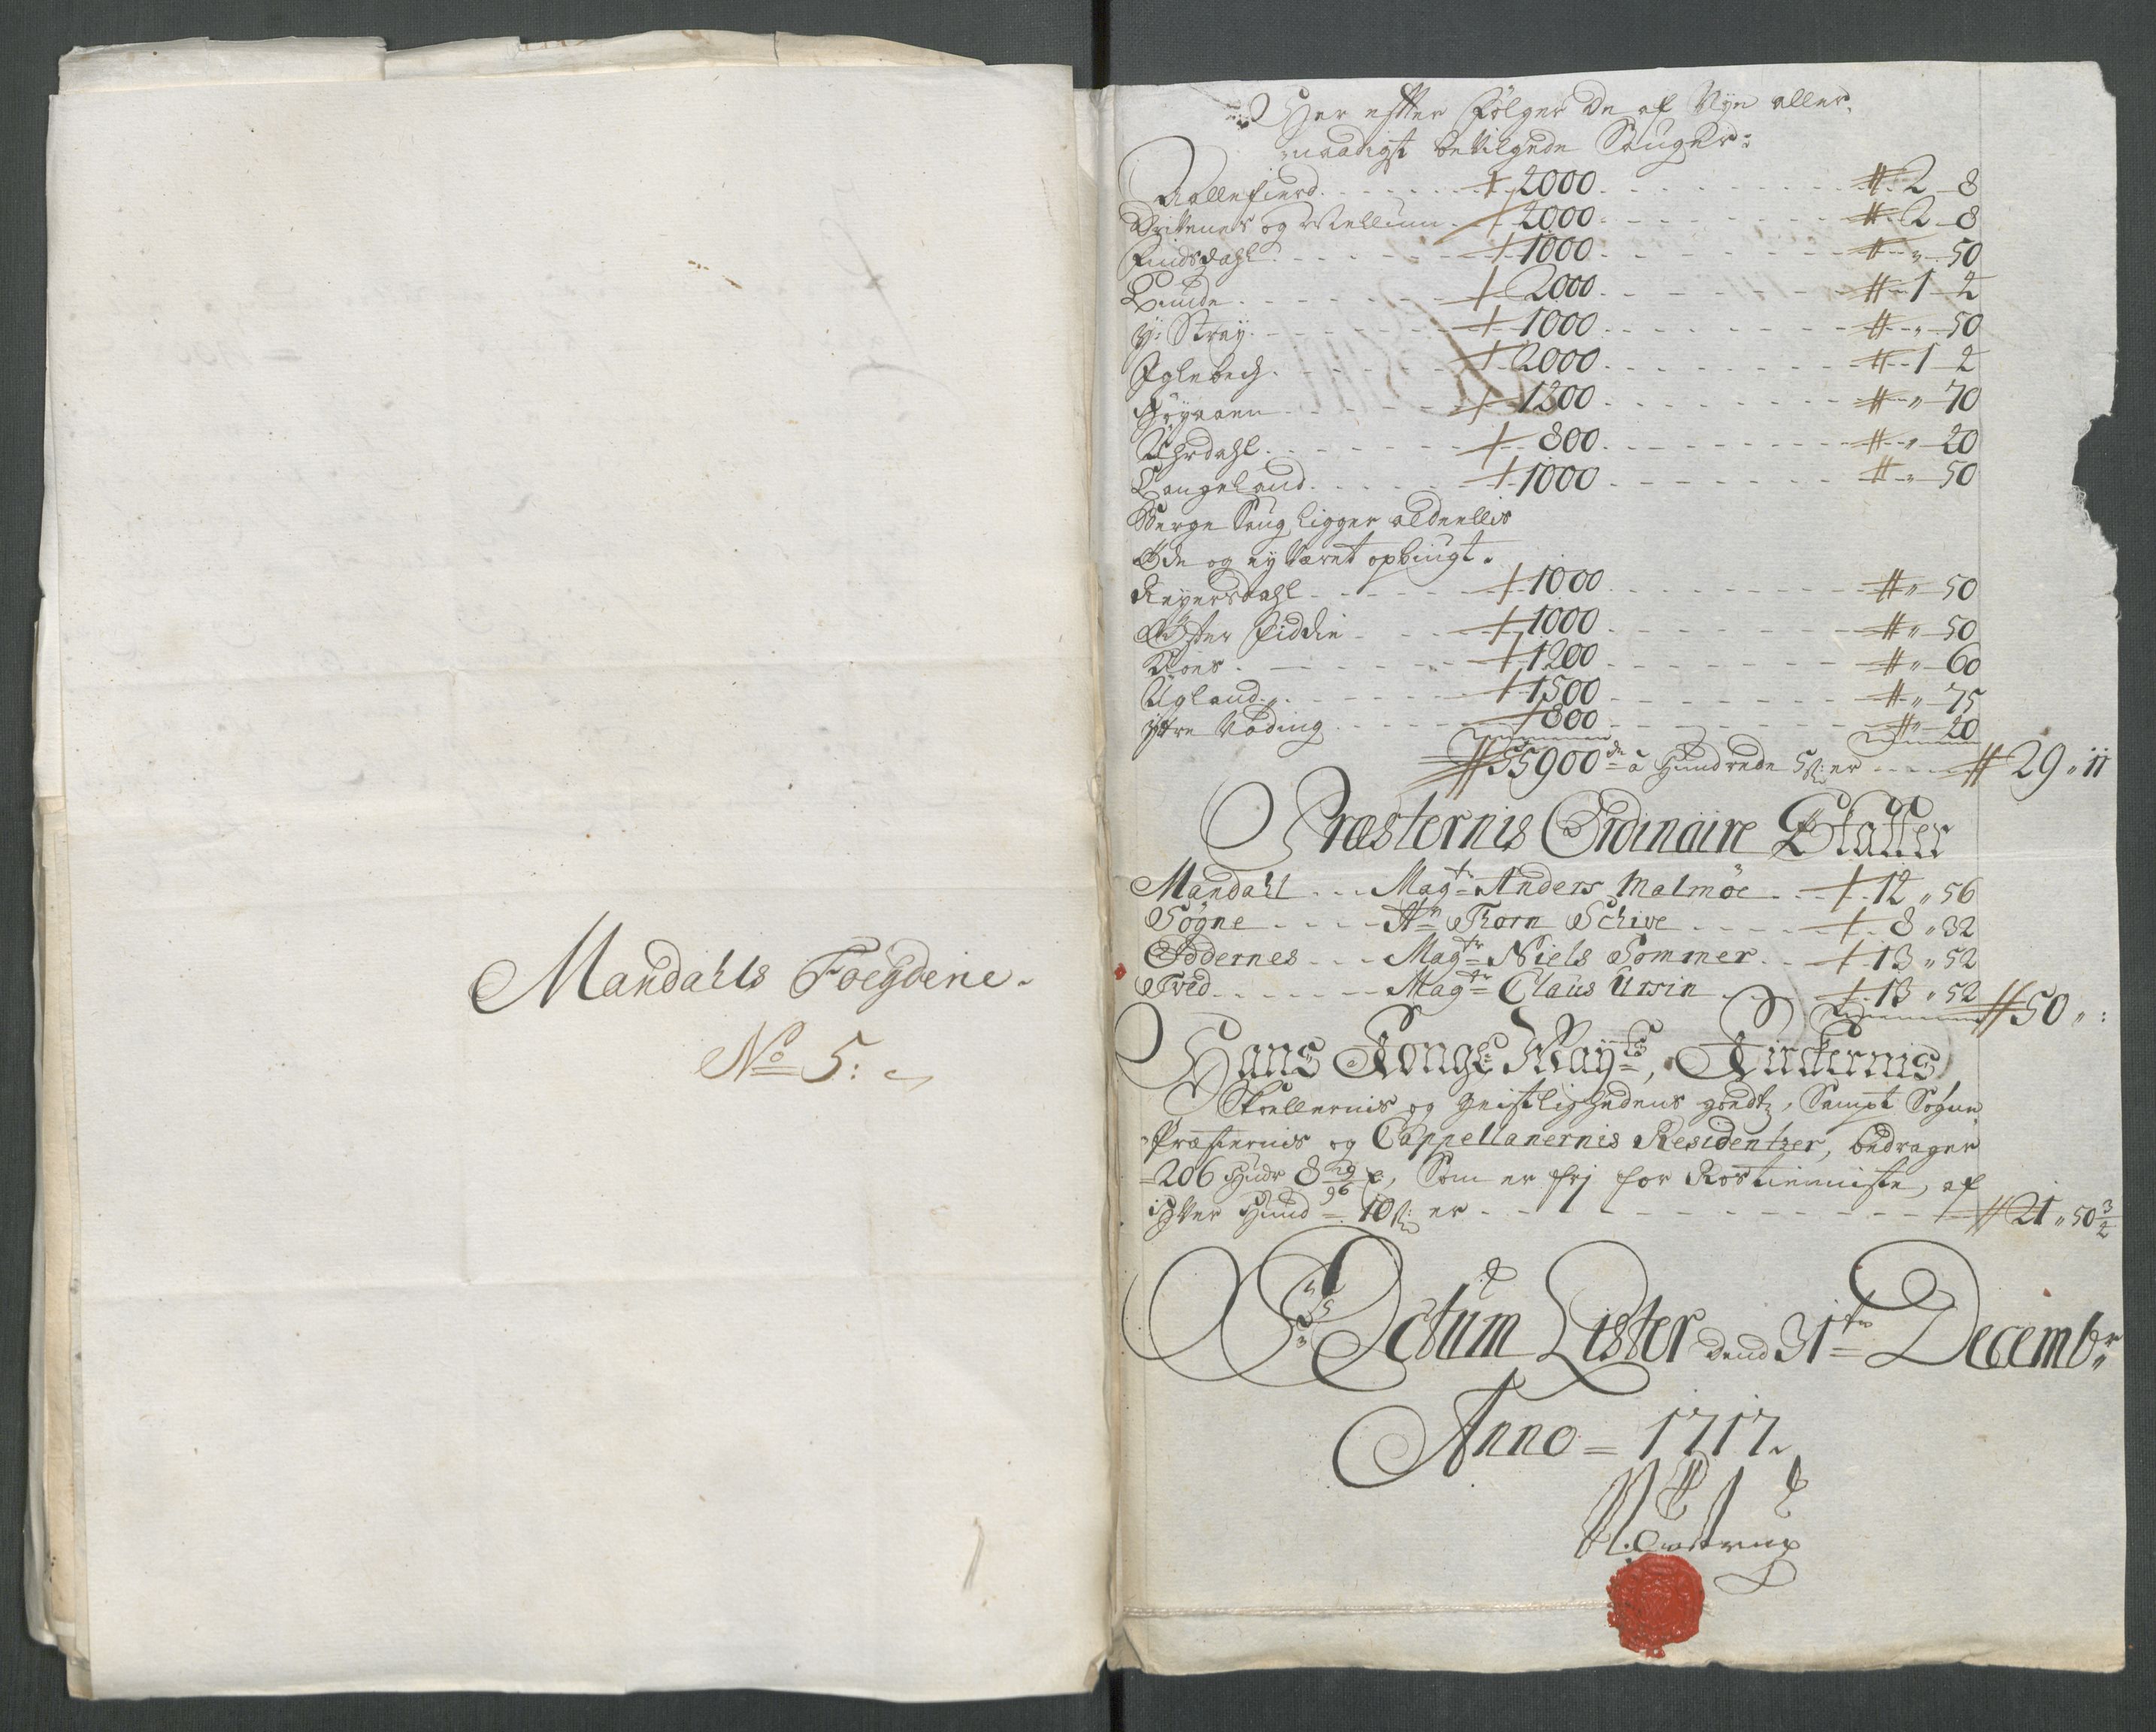 Mandahls Foegderie.
No 5:
Her efter følger de af Nye aller,
naadigst bevilgede Sauger:
Aallefierd 2000 2 8
Drivenes og Mellum 2000 2 8
Findsdahl 1000 " 50
Lunde 2000 1 2
Y: Stray 1000 " 50
Iglebech 2000 1 2
Høyaaen 1200 " 70
Uhrdahl 800 " 20
Langeland 1000 " 50
Berge Saug ligger aldeelles
Øde og ey været opbügt.
Reyersdahl 1000 " 50
Øster Fiddie 1000 " 50
Foes 1200 " 60
Ugland 1500 " 75
Ytre Vöding 800 " 20
55900 de à Hundrede 5 s: er 29 " 11
Præsternis Ordinaire Skatter
Mandahl Magr Anders Malmöe 12 " 56
Søgne Hr Thorn Schive 8 " 32
Oddernes Magr Niels Sommer 13 " 52
Tved Magr Claus Ursin 13 " 52 50 " :
Hans Kongl: Mayts, Kirkernis
Skoellernis og Geistlighedens goedtz, Sampt Sogne
Præsternis og Cappellanernis Residentzer, bedrager
206 Hudr 8 29/96, Som er frj for Rostieniste, af
hver Hud 10 s: er 21 " 50 3/2
Actum Lister dend 31te Decembr
Anno 1717.